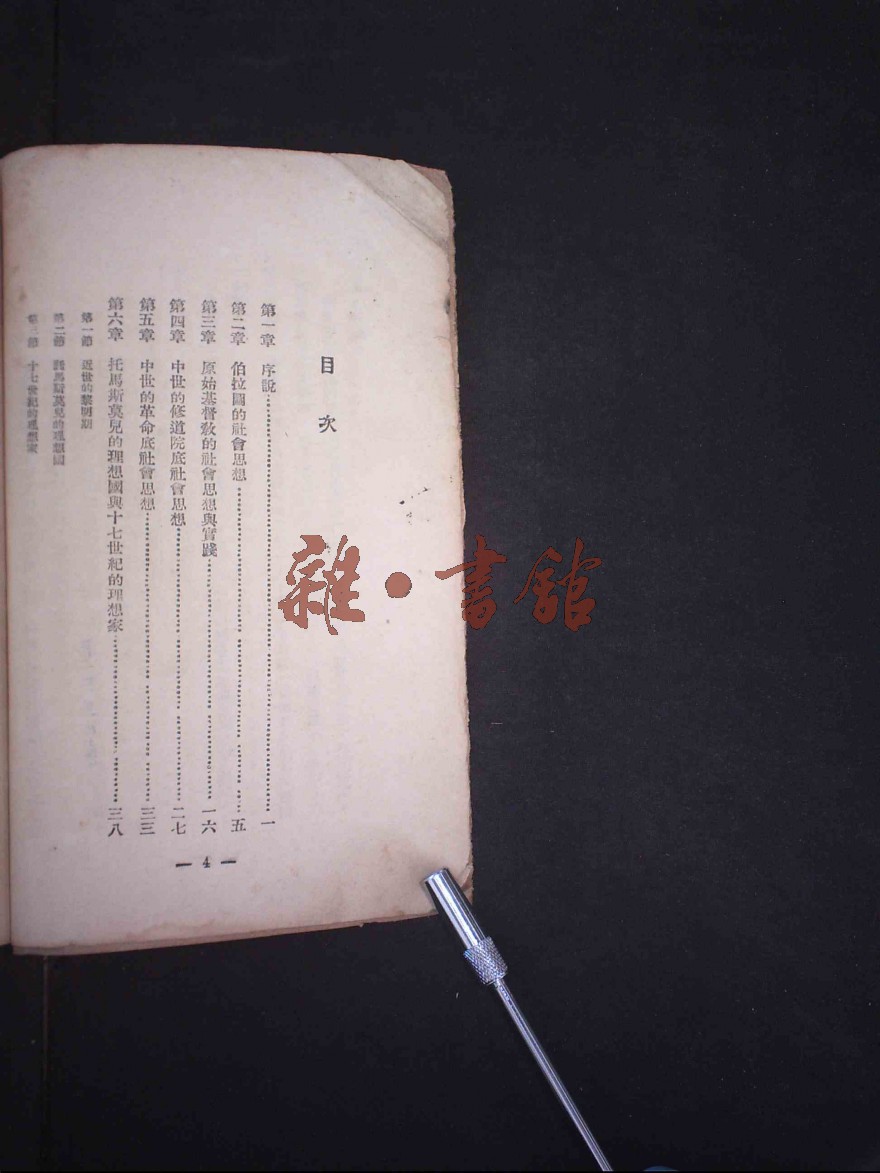 目次
第一章 序說……一
第二章 伯拉圖的社會思想……五
第三章 原始基督教的社會思想與實踐……一六
第四章 中世的修道院底社會思想……二七
第五章 中世的革命底社會思想……三三
第六章 托馬斯莫兒的理想國與十七世紀的理想家……三八
第一節 近世的黎明期
第二節 託馬斯莫兒的理想國
第三節 十七世紀的理想家
— 4 —
雜·書館